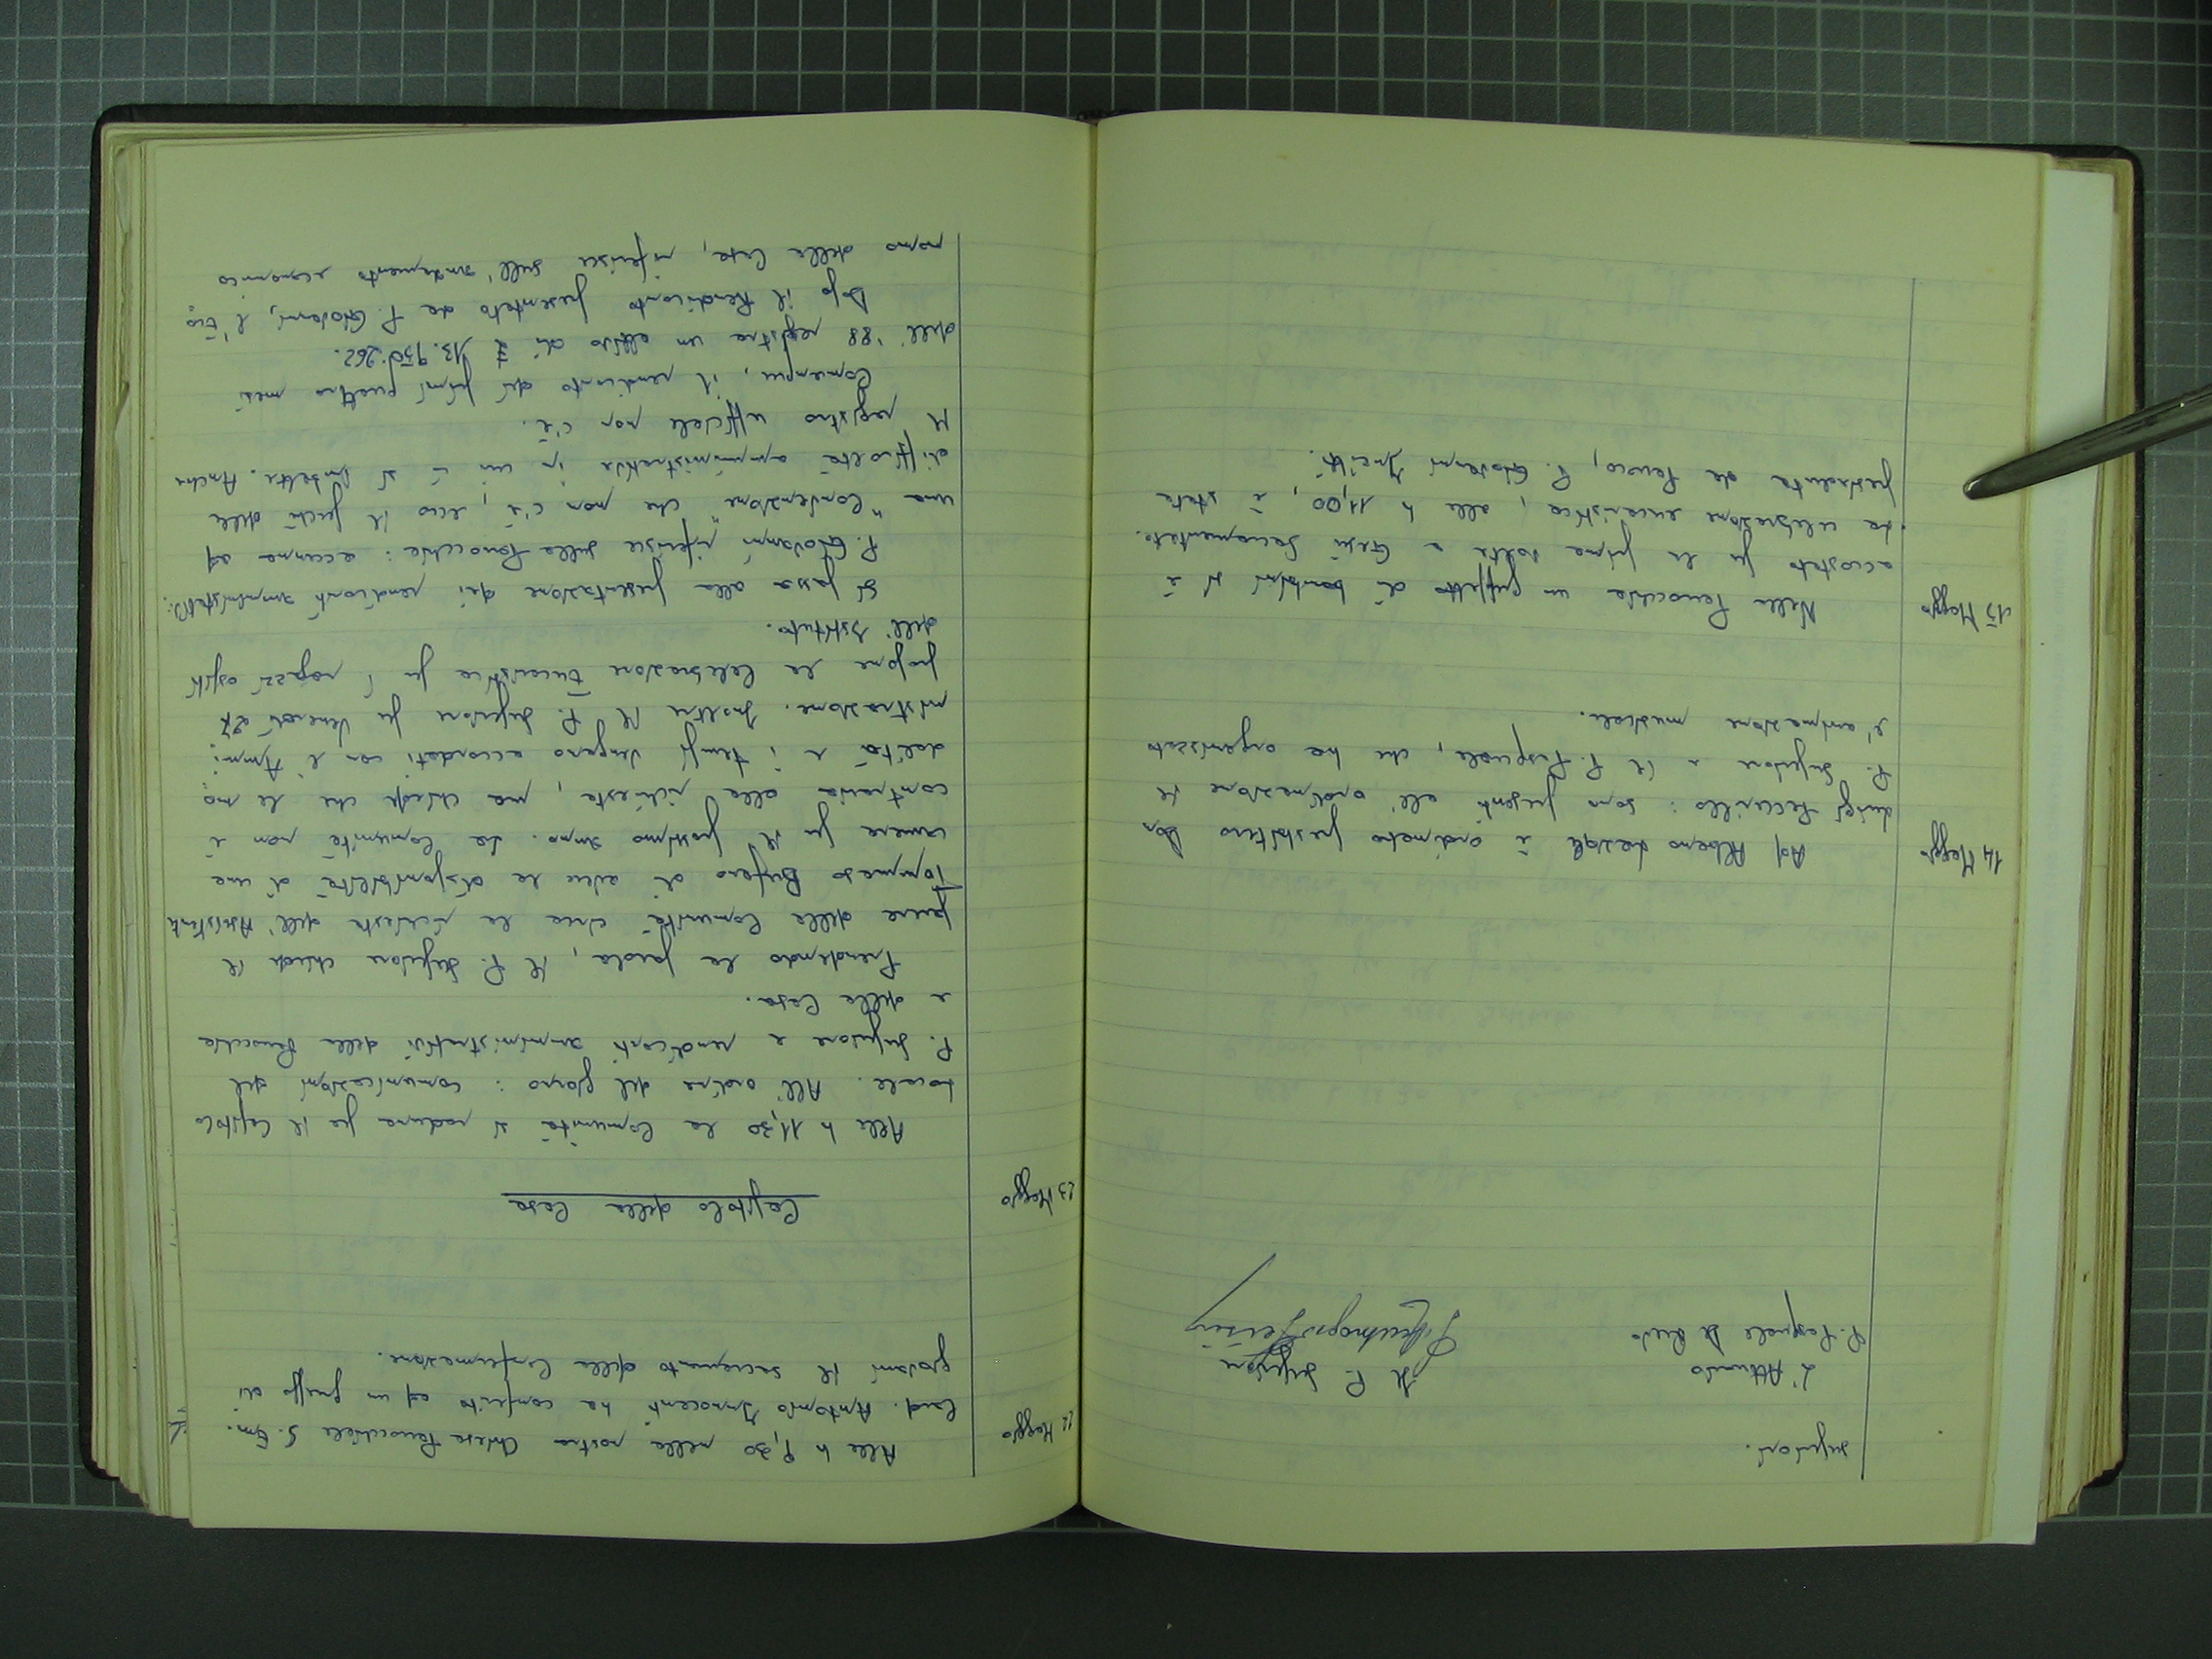 superiori.
L'Attuario
Il P. Superiore
P. Pasquale Di Rulo
14 Maggio
Ad Albano Laziale è ordinato presbitero Don
Luigi Peccirillo: sono presenti all'ordinazione il
P. Superiore e il P. Pasquale, che ha organizzato
l'animazione musicale.
15 Maggio
Nella Parrocchia un gruppetto di bambini si è
accostato per la prima volta a Gesù Sacramentato.
La celebrazione eucaristica, alle h 11,00, è stata
presieduta da Parroco, P. Giovanni
22 Maggio
Alle h 9,30 nella nostra Chiesa Parrocchiale S. Em.
Card. Antonio Innocenti ha conferito ad un gruppo di
giovani il sacramento della Confermazione.
23 Maggio
Capitolo della Casa
Alle h 11,30 la Comunità si raduna per il Capitolo
Locale. All'ordine del giorno: comunicazioni del
P. Superiore e rendiconti amministrativi della Parrocchia
e della Casa.
Prendendo la parola, il P. Superiore chiede il
parere della Comunità circa la richiesta dell'Assistente
Tommaso Bufano di avere la disponibilità di una
camera per il prossimo anno. La Comunità non è
contraria alla richiesta, ma chiede che le mo
dalità e i tempi vengano accordati con l'Ammi:
nistrazione. Inoltre il P. Superiore per Venerdì 27
propone la Celebrazione Eucaristica per i ragazzi ospiti
dell'Istituto.
Si passa alla presentazione dei rendiconti amministrativi:
P. Giovanni riferisce sulla Parrocchia: accenna ad
una "Convenzione" che non c'è, ecco il perché delle
difficoltà amministrative in cui ci si imbatte. Anche
il registro ufficiale non c'è.
Comunque, il rendiconto dei primi quattro mesi
dell'88 registra un attivo di £ 13.950.262.
Dopo il Rendiconto presentato da P. Giovanni, l'Eco
nomo della Casa, riferisce sull'andamento economico